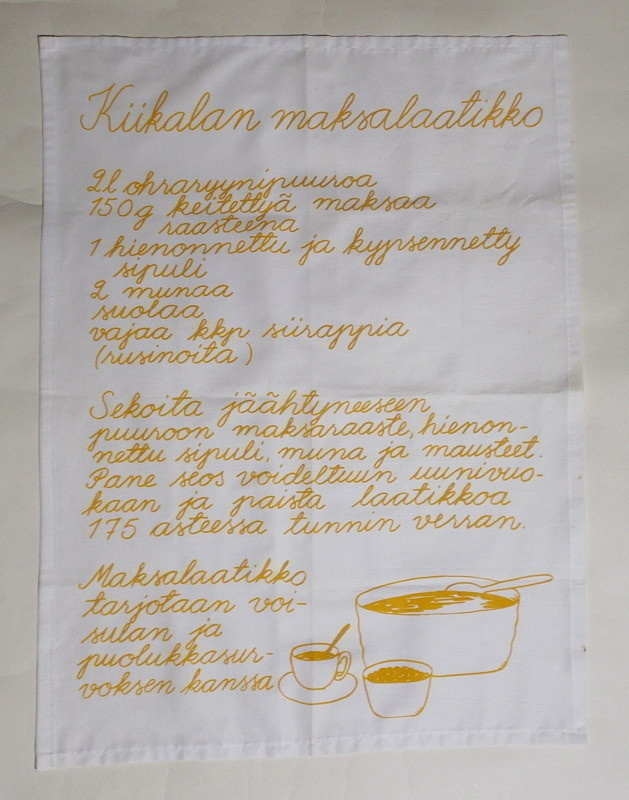 Kiikalan maksalaatikko
2l ohraryynipuuroa
150g keitettyä maksaa
raasteena
1 hienonnettu ja kypsennetty
sipuli
2 munaa
suolaa
vajaa kkp siirappia
(rusinoita)
Sekoita jäähtyneeseen
puuroon maksaraaste, hienon-
nettu sipuli, muna ja mausteet.
Pane seos voideltuun uunivuo-
kaan ja paista laatikkoa
175 asteessa tunnin verran.
Maksalaatikko
tarjotaan voi-
sulan ja
puolukkasur-
voksen kanssa